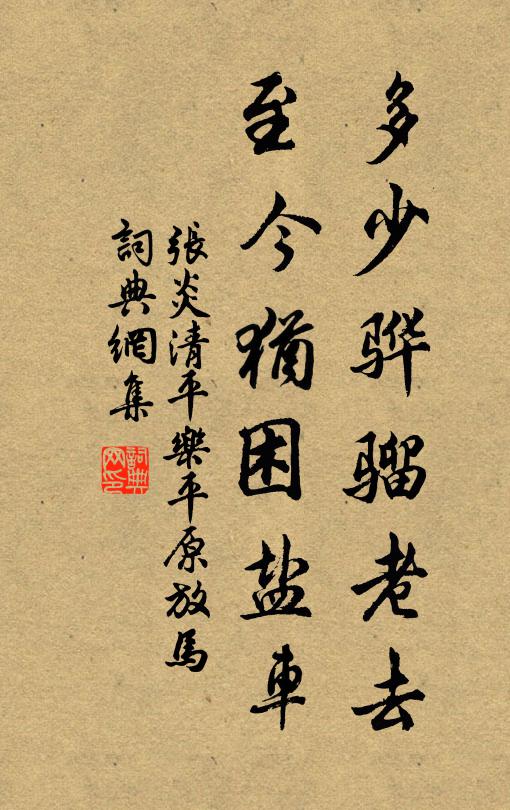 多少骅骝老去
至今犹困盐車
張炎清平樂平原放馬
詞典網集
詞典网印